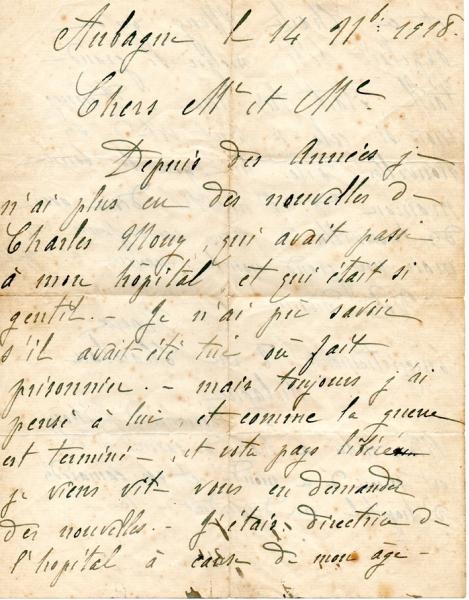 Aubagne le 14 9b: 1918.
Chers Mr et Me
Depuis des Années je
n'ai plus eu des nouvelles de
Charles Mouy, qui avait passé
à mon hôpital, et qui était si
gentil. - Je n'ai pû savoir
s'il avait-été tué ou fait
prisonnier. - mais toujours j'ai
pensé à lui, et comme la guerre
est terminé - et votre pays libéré
je viens vite vous en demander
des nouvelles. - J'étais directrice de
l'hopital à cause de mon âge -